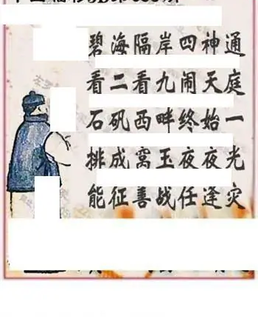 碧海隔岸四神通
看二看九闹天庭
石矶西畔终始一
排成窝玉夜夜光
能征善战任逢灾